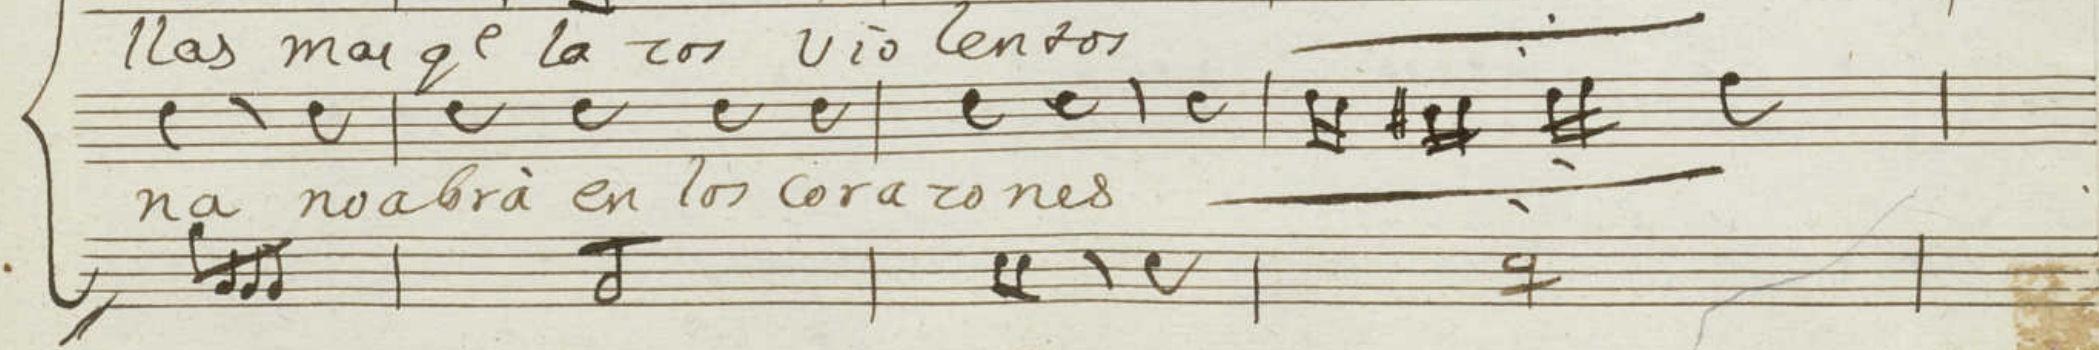 llas mas qe la zos vio lentos
na no abrà en los corazones